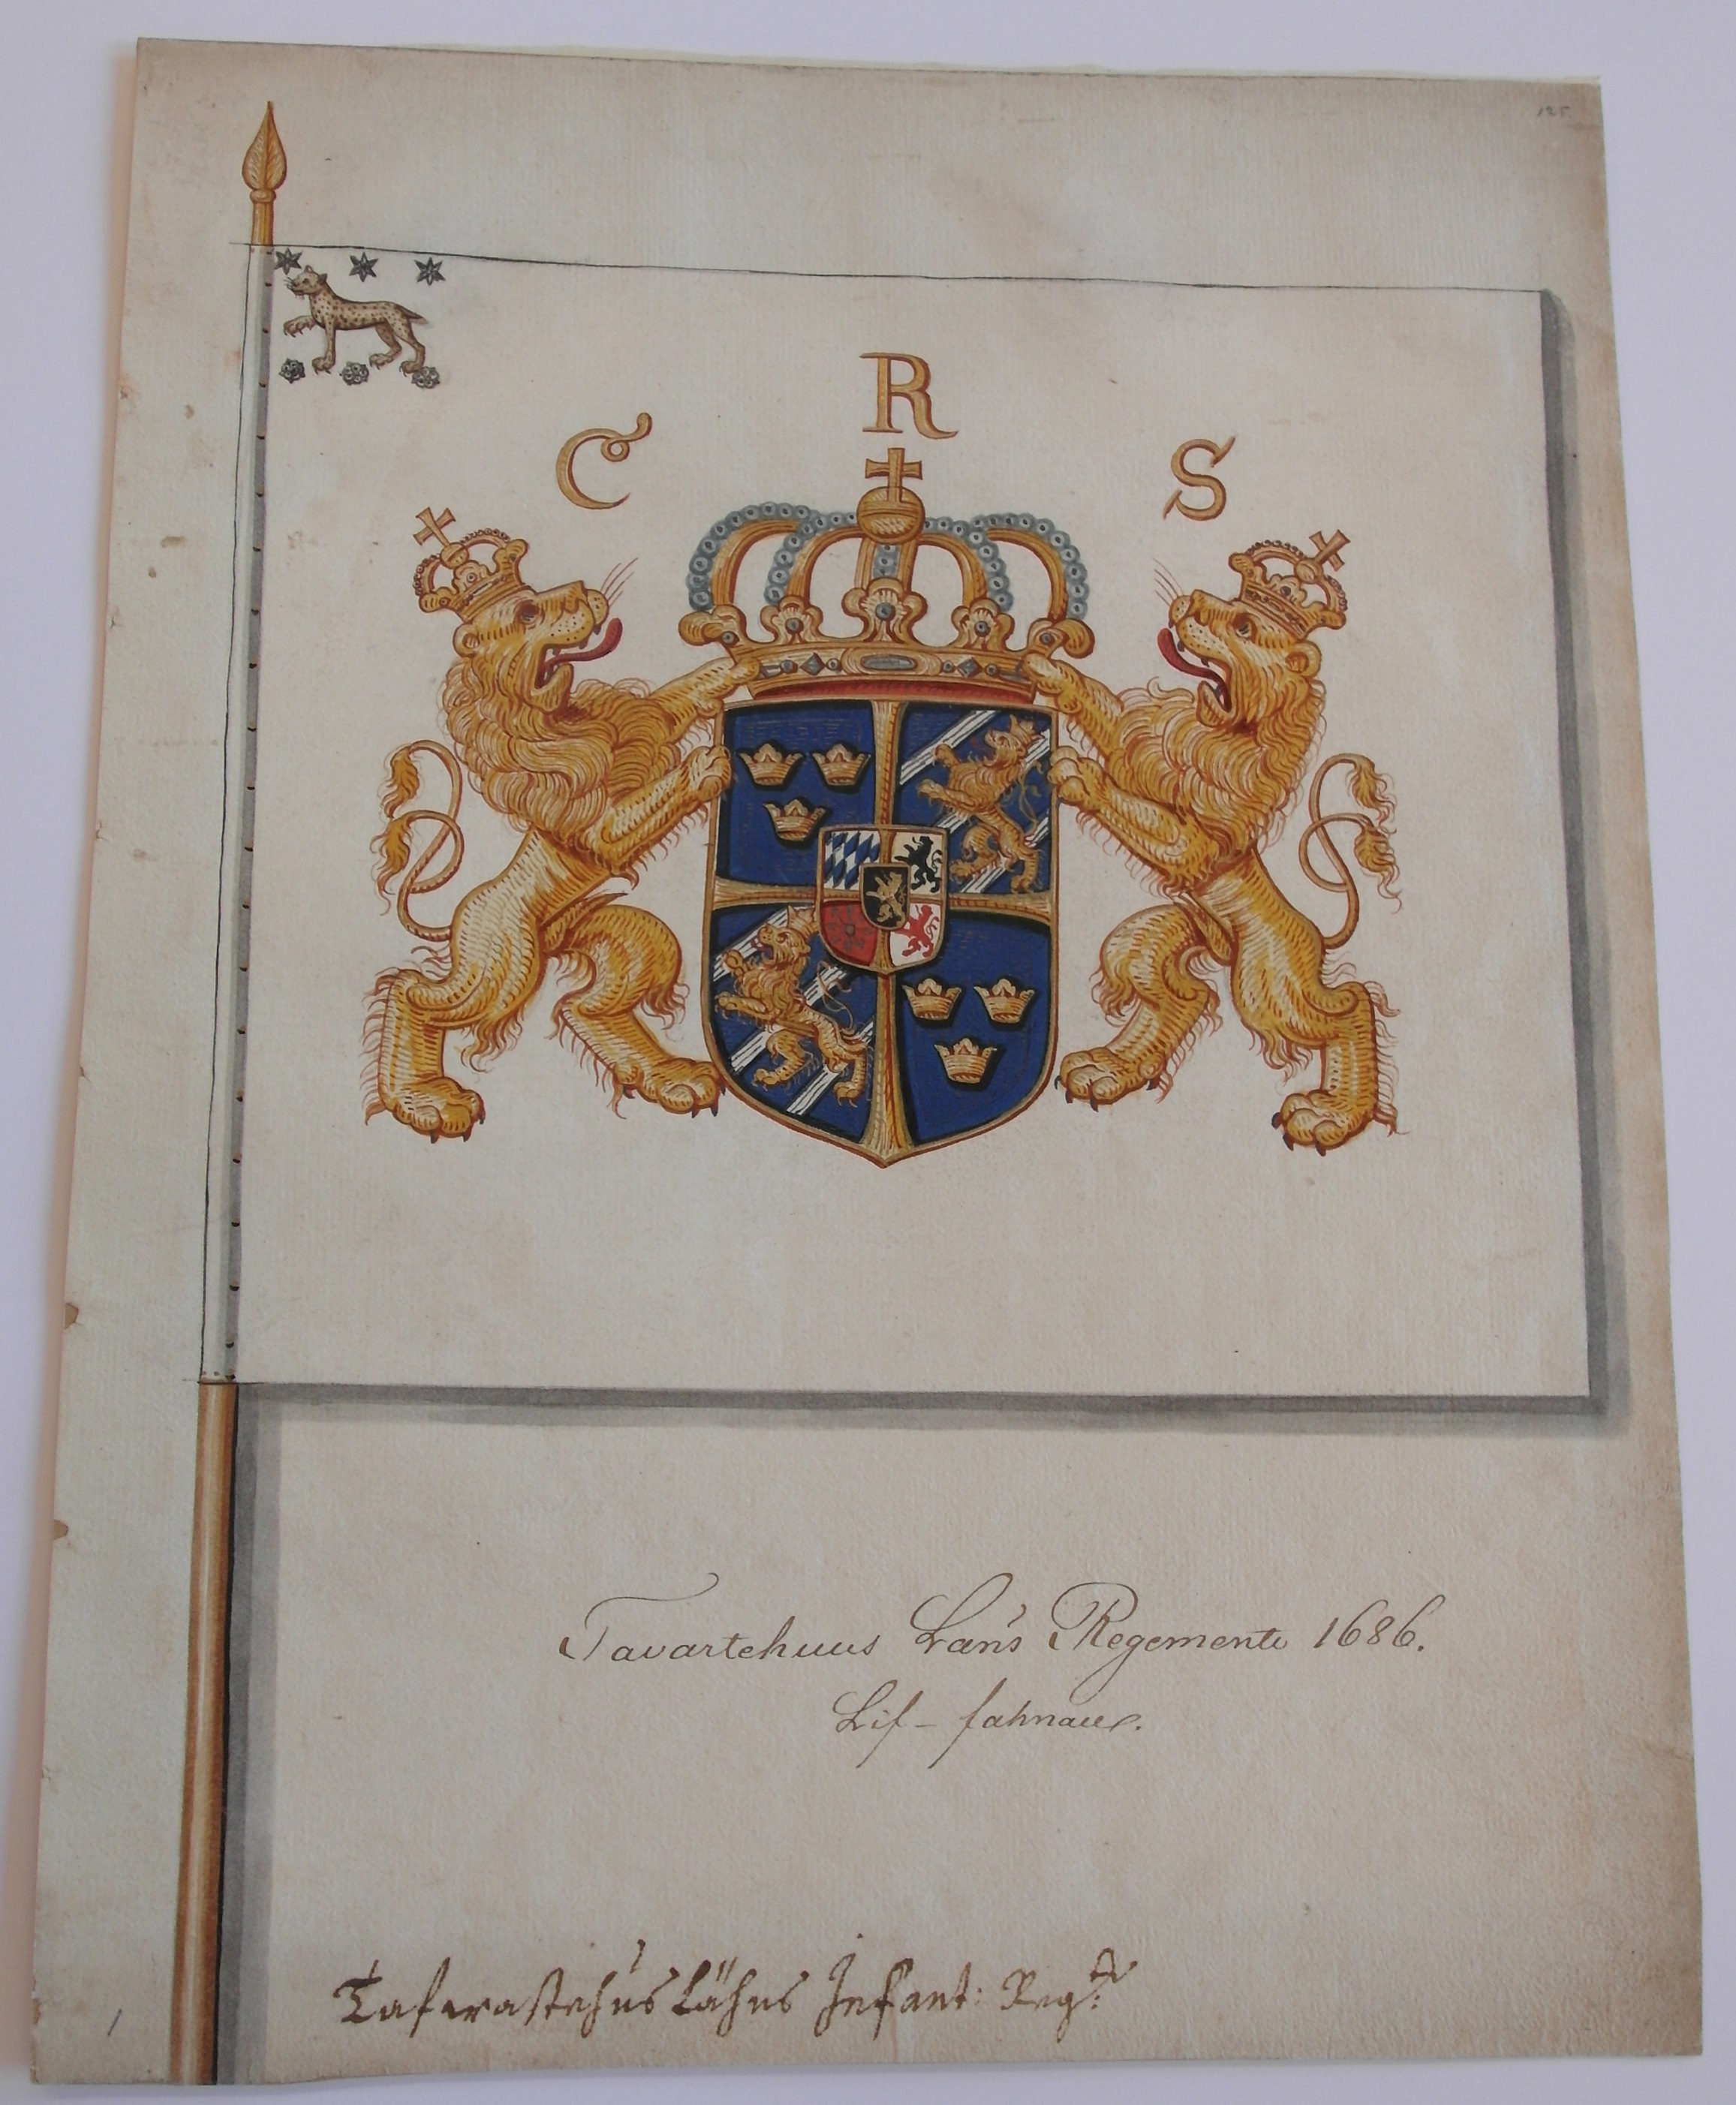 125
C R S
Tavartehuus Län's Regemente 1686.
Lif- fahnan.
Tafwastehus Lähns Infant: Reg:te